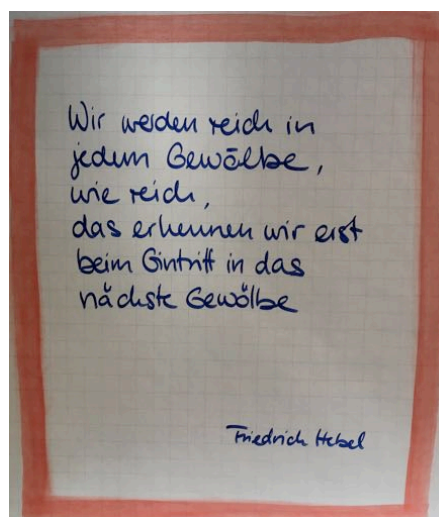 Wir werden reich in
jedem Gewölbe,
wie reich,
das erkennen wir erst
beim Eintritt in das
nächste Gewölbe
Friedrich Hebel